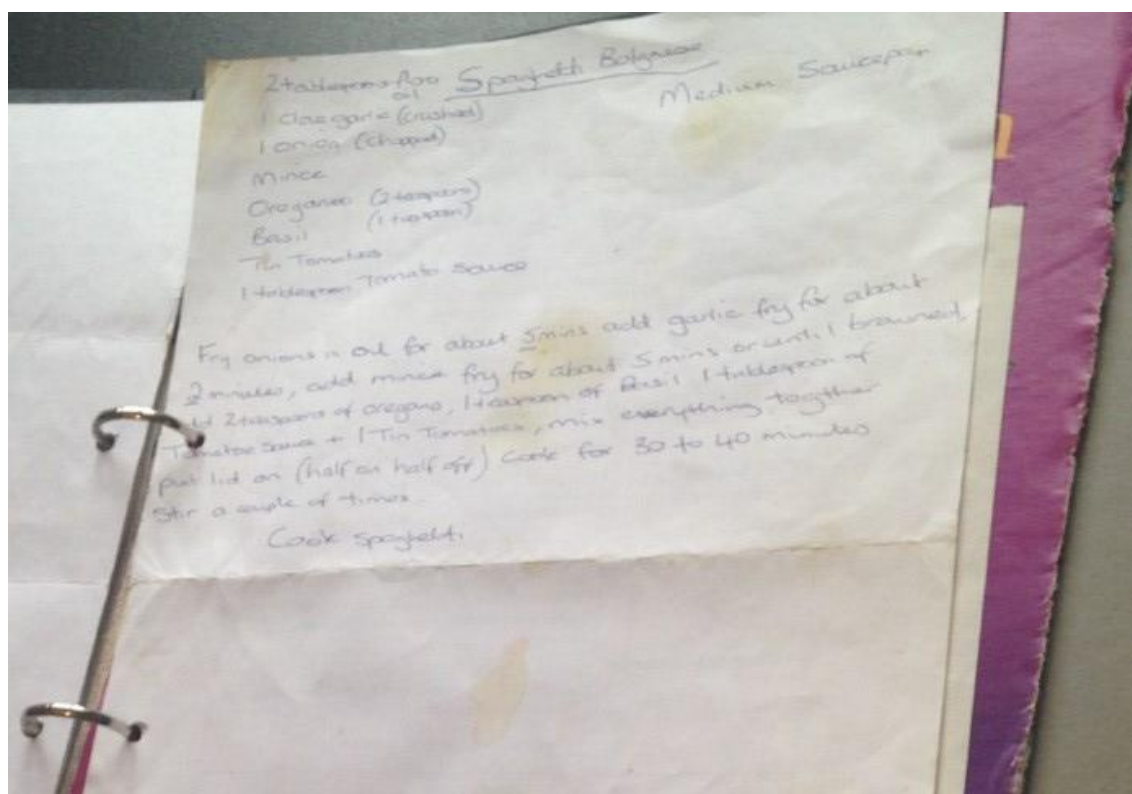 Spaghetti Bolognese
Medium Saucepan
2 tablespoons
oil
1 clove garlic (crushed)
1 onion (chopped)
Mince
Oregano (2 teaspoons)
Basil (1 teaspoon)
Tin Tomatoes
1 tablespoon Tomato Sauce
Fry onions in oil for about 5 mins add garlic fry for about
2 minutes, add mince fry for about 5 mins or until browned,
2 teaspoons of oregano, 1 teaspoon of Basil 1 tablespoon of
Tomatoe Sauce + 1 Tin Tomatoes, mix everything together
put lid on (half on half off) Cook for 30 to 40 minutes
Stir a couple of times.
Cook spaghetti